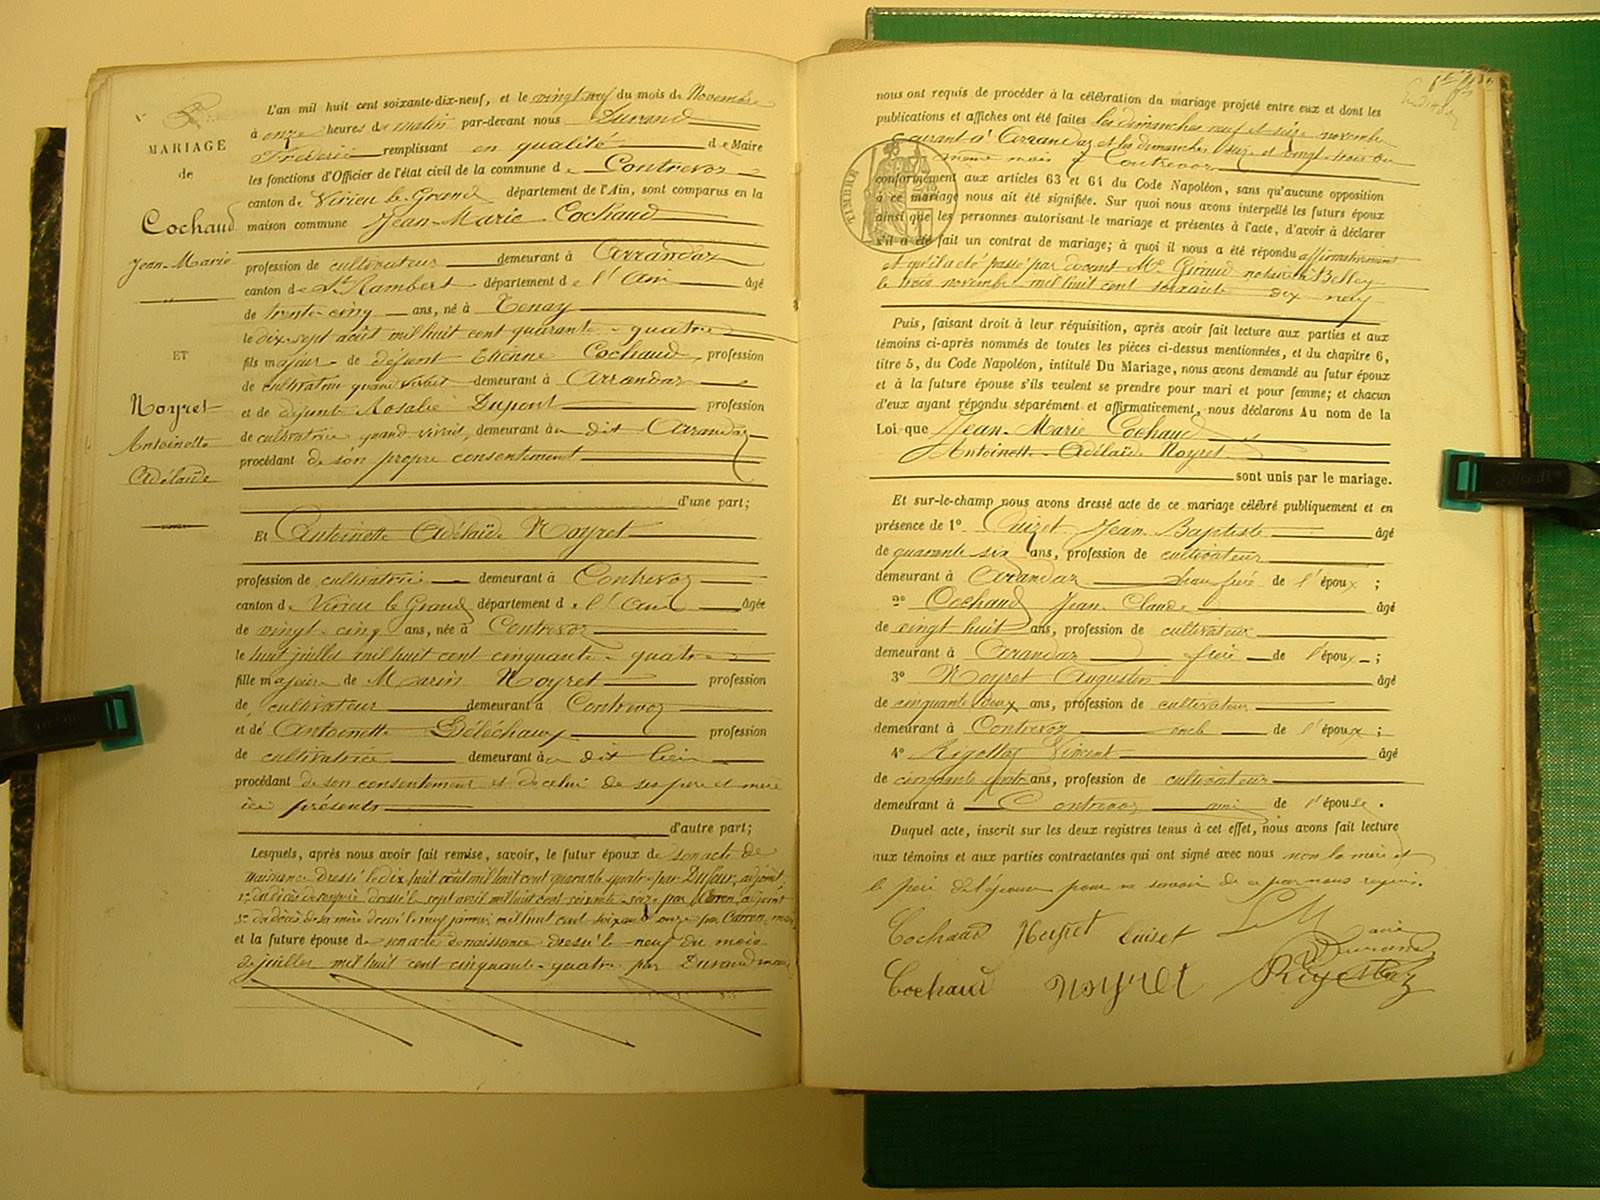 MARIAGE
de
Cochaud
Jean-Marie
ET
Noyret
Antoinette
Adélaïde
L'an mil huit cent soixante-dix-neuf, et le vingt neuf du mois de Novembre
à onze heures du matin par-devant nous Durand
Fréderic remplissant en qualité de Maire
les fonctions d'Officier de l'état civil de la commune de Contrevoz
canton de Virieu le Grand département de l'Ain, sont comparus en la
maison commune Jean-Marie Cochaud
profession de cultivateur demeurant à Arrandaz
canton de St Rambert département de l'Ain âgé
de trente cinq ans, né à Tenay
le dix-sept août mil huit cent quarante-quatre
fils majeur de défunt Etienne Cochaud, profession
de cultivateur quand vivait demeurant à Arrandaz
et de défunte Rosalie Dupont profession
de cultivatrice quand vivait, demeurant au dit Arrandaz
procédant de son propre consentement
d'une part;
Et Antoinette Adélaïde Noyret
profession de cultivatrice demeurant à Contrevoz
canton de Virieu le Grand département de l'Ain âgée
de vingt-cinq ans, née à Contrevoz
le huit juillet mil huit cent cinquante-quatre
fille majeure de Marin Noyret profession
de cultivateur demeurant à Contrevoz
et de Antoinette profession
de cultivatrice demeurant au dit lieu
procédant de son consentement et de celui de ses père et mère
ici présents
d'autre part;
Lesquels, après nous avoir fait remise, savoir, le futur époux de son acte de
naissance dressé le dix huit août mil huit cent quarante quatre par Dufour, adjoint
du décès de son père dressé le sept avril mil huit cent soixante seize par adjoint
du décès de sa mère dressé le neuf janvier mil huit cent soixante onze par Carron, maire
et la future épouse de son acte de naissance dressé le neuf du mois
de juillet mil huit cent cinquante-quatre par Durand maire
nous ont requis de procéder à la célébration du mariage projeté entre eux et dont les
publications et affiches ont été faites les dimanches neuf et seize novembre
courant à Arrandaz et les dimanches seize et vingt-trois du
même mois à Contrevoz
TIMBRE
conformément aux articles 63 et 64 du Code Napoléon, sans qu'aucune opposition
à ce mariage nous ait été signifiée. Sur quoi nous avons interpellé les futurs époux
ainsi que les personnes autorisant le mariage et présentes à l'acte, d'avoir à déclarer
s'il a été fait un contrat de mariage; à quoi il nous a été répondu affirmativement
et qu'il a été passé par devant Me Giraud notaire à Belley
le trois novembre mil huit cent soixante dix neuf
Puis, faisant droit à leur réquisition, après avoir fait lecture aux parties et aux
témoins ci-après nommés de toutes les pièces ci-dessus mentionnées, et du chapitre 6,
titre 5, du Code Napoléon, intitulé Du Mariage, nous avons demandé au futur époux
et à la future épouse s'ils veulent se prendre pour mari et pour femme; et chacun
d'eux ayant répondu séparément et affirmativement, nous déclarons Au nom de la
Loi que Jean-Marie Cochaud
Antoinette-Adélaïde Noyret
sont unis par le mariage.
Et sur-le-champ nous avons dressé acte de ce mariage célébré publiquement et en
présence de 1° Cuizet Jean Baptiste âgé
de quarante six ans, profession de cultivateur
demeurant à Arrandaz beau frère de l'époux;
2° Cochaud Jean Claude âgé
de vingt huit ans, profession de cultivateur
demeurant à Arrandaz frère de l'époux;
3° Noyret Augustin âgé
de cinquante deux ans, profession de cultivateur
demeurant à Contrevoz oncle de l'époux;
4° Rigollaz Vincent âgé
de cinquante ans, profession de cultivateur
demeurant à Contrevoz ami de l'épouse.
Duquel acte, inscrit sur les deux registres tenus à cet effet, nous avons fait lecture
aux témoins et aux parties contractantes qui ont signé avec nous non la mère et
le père de l'épouse pour ne savoir de ce par nous requis.
Cochaud Noyret Cuiset Le Maire
Durand
Cochaud Noyret Rigollaz